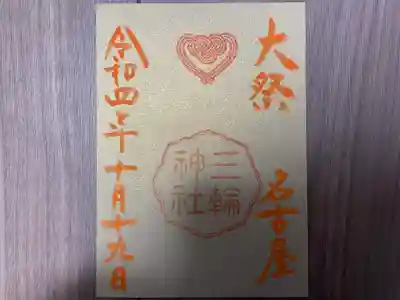 大祭 名古屋
三輪
神社
令和四年十月十九日